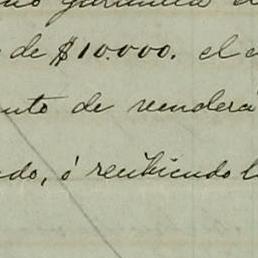 garantica
de $10.000. el
nto de venderá
do, ó recibiendo l